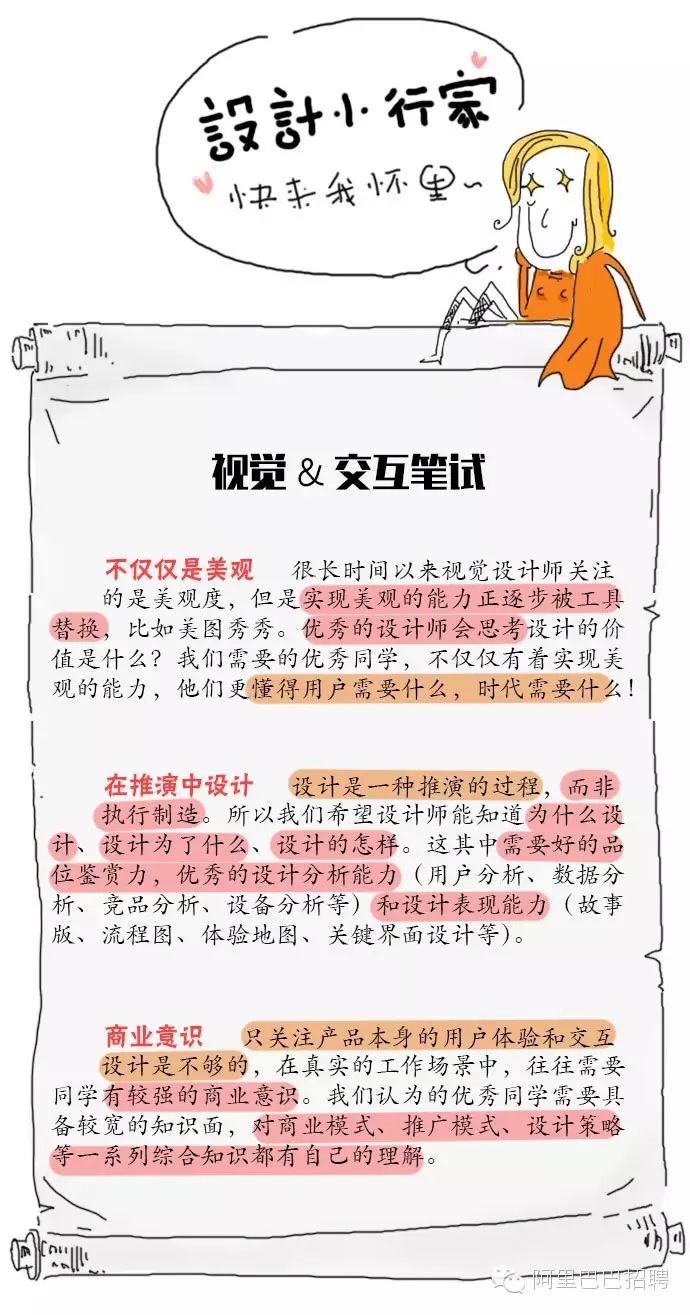 設計小行家
快来我怀里~
视觉 & 交互笔试
不仅仅是美观 很长时间以来视觉设计师关注
的是美观度，但是实现美观的能力正逐步被工具
替换，比如美图秀秀。优秀的设计师会思考设计的价
值是什么？我们需要的优秀同学，不仅仅有着实现美
观的能力，他们更懂得用户需要什么，时代需要什么！
在推演中设计 设计是一种推演的过程，而非
执行制造。所以我们希望设计师能知道为什么设
计、设计为了什么、设计的怎样。这其中需要好的品
位鉴赏力，优秀的设计分析能力（用户分析、数据分
析、竞品分析、设备分析等）和设计表现能力（故事
版、流程图、体验地图、关键界面设计等）。
商业意识 只关注产品本身的用户体验和交互
设计是不够的，在真实的工作场景中，往往需要
同学有较强的商业意识。我们认为的优秀同学需要具
备较宽的知识面，对商业模式、推广模式、设计策略
等一系列综合知识都有自己的理解。
阿里巴巴招聘